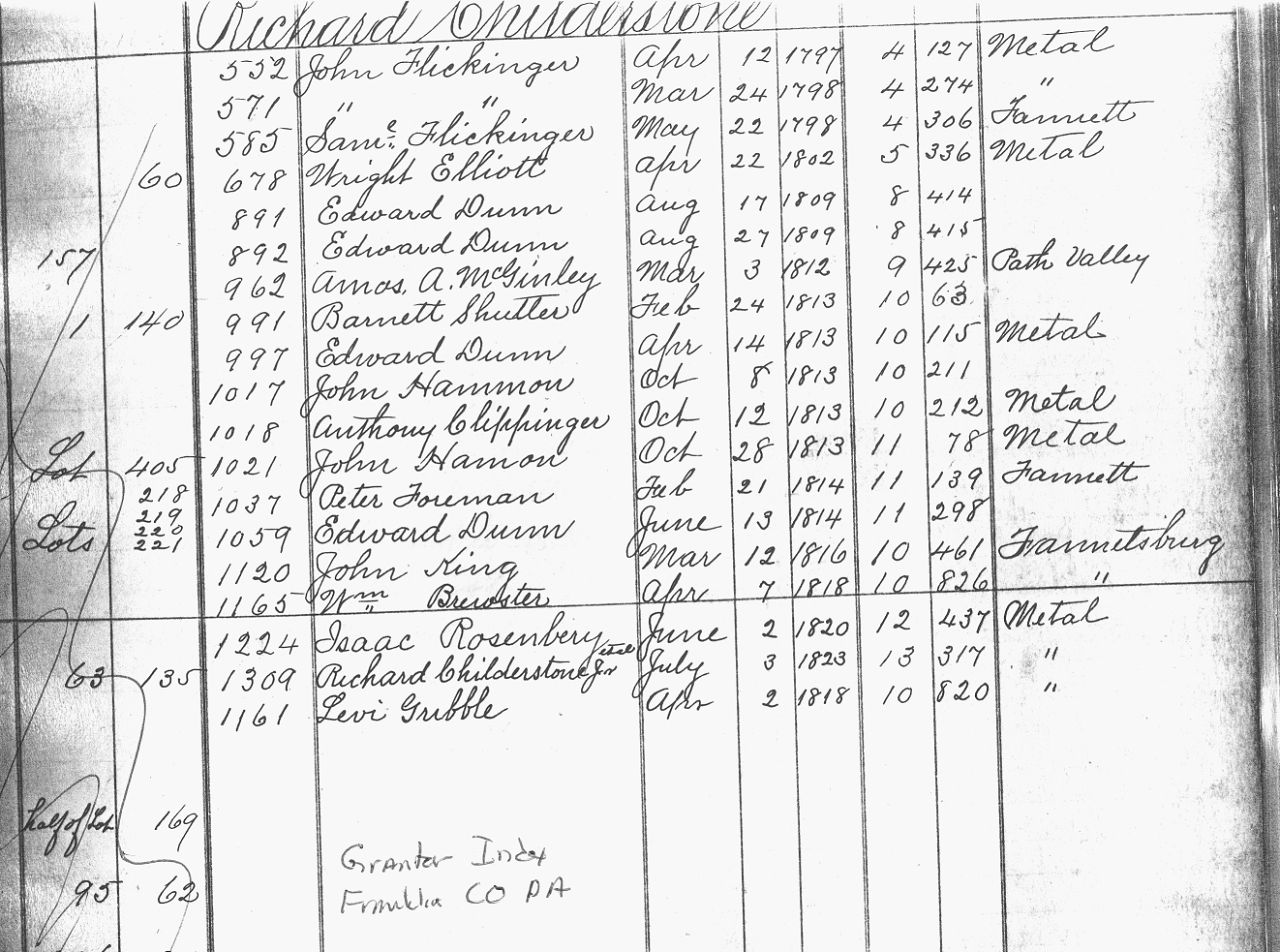 Richard Childerstone
552 John Flickinger Apr 12 1797 4 127 Metal
571 " " Mar 24 1798 4 274 "
585 Saml. Flickinger May 22 1798 4 306 Fannett
60 678 Wright Elliott Apr 22 1802 5 336 Metal
891 Edward Dunn Aug 17 1809 8 414
892 Edward Dunn Aug 27 1809 8 415
157 962 Amos. A. McGinley Mar 3 1812 9 425 Path Valley
1 140 991 Barnett Shutter Feb 24 1813 10 63
997 Edward Dunn Apr 14 1813 10 115 Metal
1017 John Hammon Oct 8 1813 10 211
1018 Anthony Clippinger Oct 12 1813 10 212 Metal
Lot 405 1021 John Hamon Oct 28 1813 11 78 Metal
218
1037 Peter Foreman Feb 21 1814 11 139 Fannett
219
Lots 220 1059 Edward Dunn June 13 1814 11 298
221
1120 John King Mar 12 1816 10 461 Fannetsburg
1165 Wm Brewster Apr 7 1818 10 826 "
1224 Isaac Rosenbery et al June 2 1820 12 437 Metal
63 135 1309 Richard Childerstone Jr July 3 1823 13 317 "
1161 Levi Gribble Apr 2 1818 10 820 "
half of Lot 169
Grantor Index
95 62 Franklin CO PA